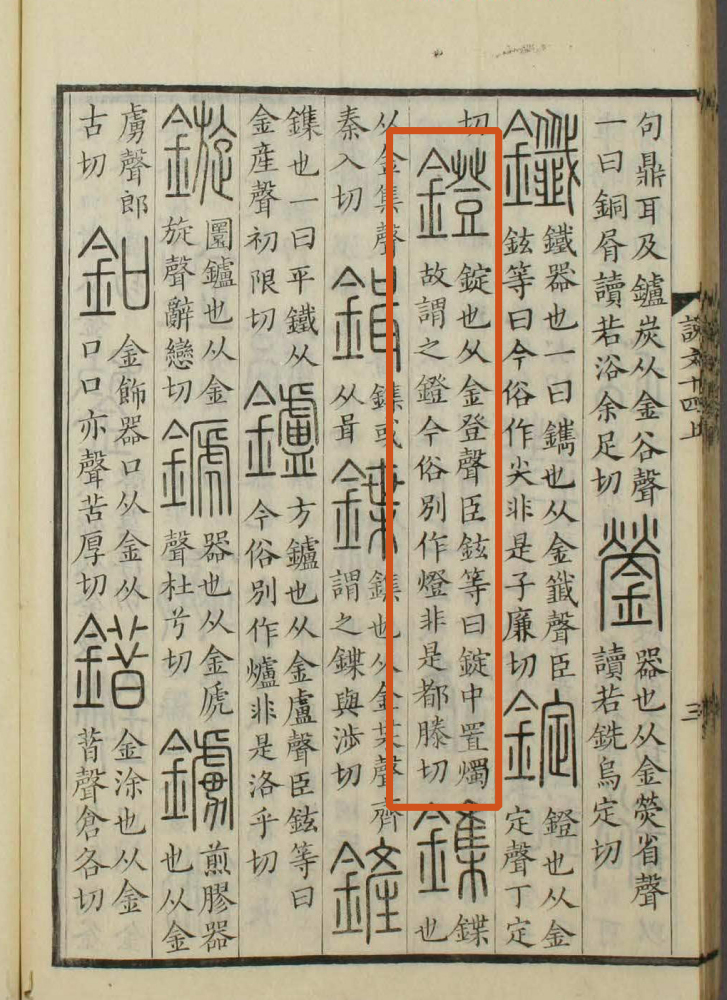 句鼎耳及鑪炭从金谷聲
一曰銅屑讀若浴余足切
鎣
器也从金熒省聲
讀若銑烏定切
鑯
鐵器也一曰鐫也从金韱聲臣
鉉等曰今俗作尖非是子廉切
錠
鐙也从金
定聲丁定
切
鐙
錠也从金登聲臣鉉等曰錠中置燭
故謂之鐙今俗別作燈非是都滕切
鏶
鍱
也
从金集聲
秦入切
鍓
鏶或
从咠
鍱
鏶也从金枼聲齊
謂之鍱與涉切
鏟
鏶也一曰平鐵从
金産聲初限切
鑪
方鑪也从金盧聲臣鉉等曰
今俗別作爐非是洛乎切
鏇
圜鑪也从金
旋聲辭戀切
𨪉
器也从金虒
聲杜兮切
鐪
煎膠器
也从金
虜聲郎
古切
釦
金飾器口从金从
口口亦聲苦厚切
錯
金涂也从金
昝聲倉各切
說文十四上
三